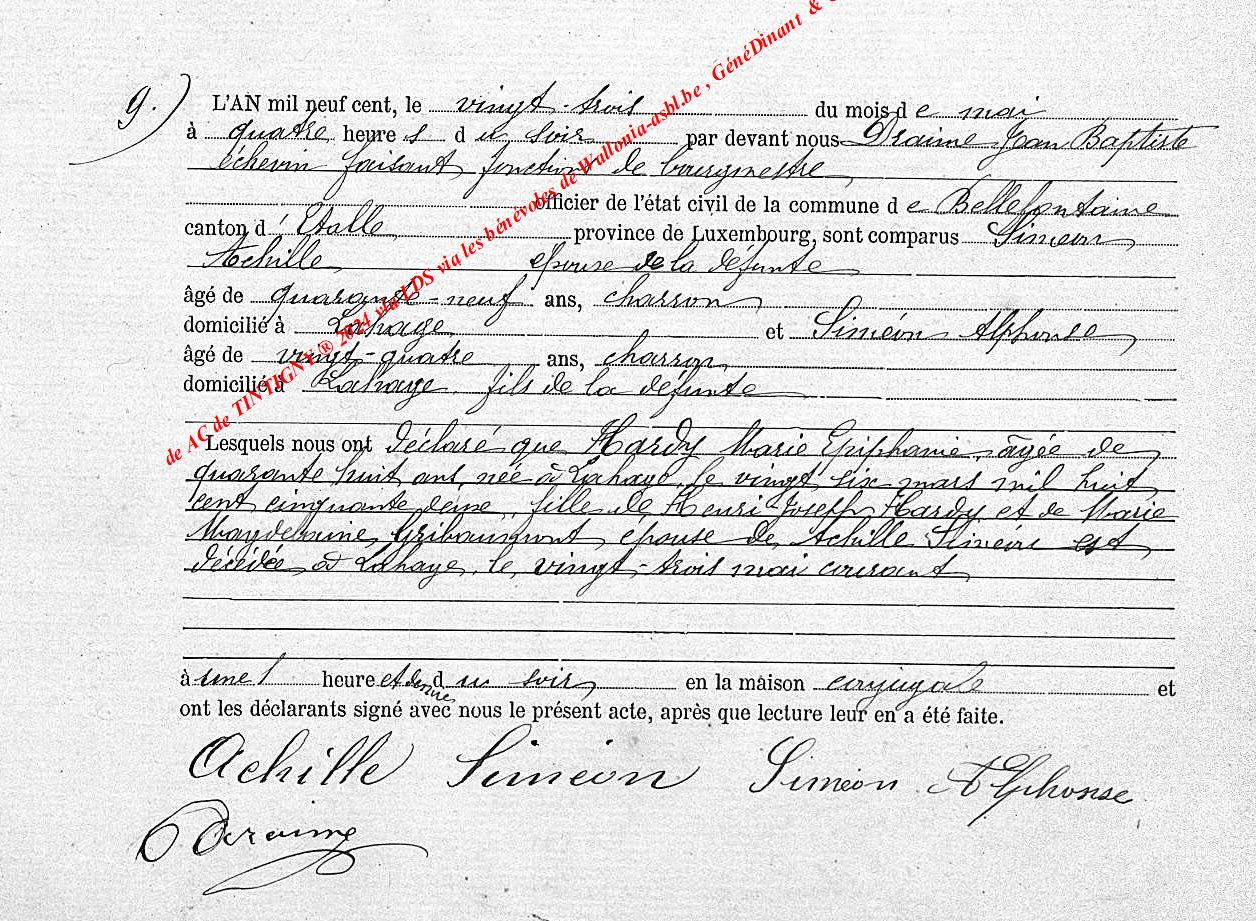 9.) L'AN mil neuf cent, le vingt-trois du mois d e mai
à quatre heure s d u soir par devant nous Draime Jean Baptiste
échevin faisant fonction de bourgmestre
officier de l'état civil de la commune d e Bellefontaine
canton d' Etalle province de Luxembourg, sont comparus Siméon
Achille épouse de la défunte
âgé de quarante-neuf ans, charron
domicilié à Lahage et Siméon Alphonse
âgé de vingt-quatre ans, charron
domicilié à Lahage, fils de la défunte
Lesquels nous ont déclaré que Hardy Marie Epiphanie, âgée de
quarante huit ans, née à Lahage, le vingt six mars mil huit
cent cinquante deux, fille de Henri-Joseph Hardy et de Marie
Magdeleine Gribaumont, épouse de Achille Siméon est
décédée à Lahage, le vingt-trois mai courant
à une heure et demie d u soir en la maison conjugale et
ont les déclarants signé avec nous le présent acte, après que lecture leur en a été faite.
Achille Siméon Siméon Alphonse
Draime
de AC de TINTIGNY ® 2024 via LDS via les bénévoles de Wallonia-asbl.be, GénéDinant &